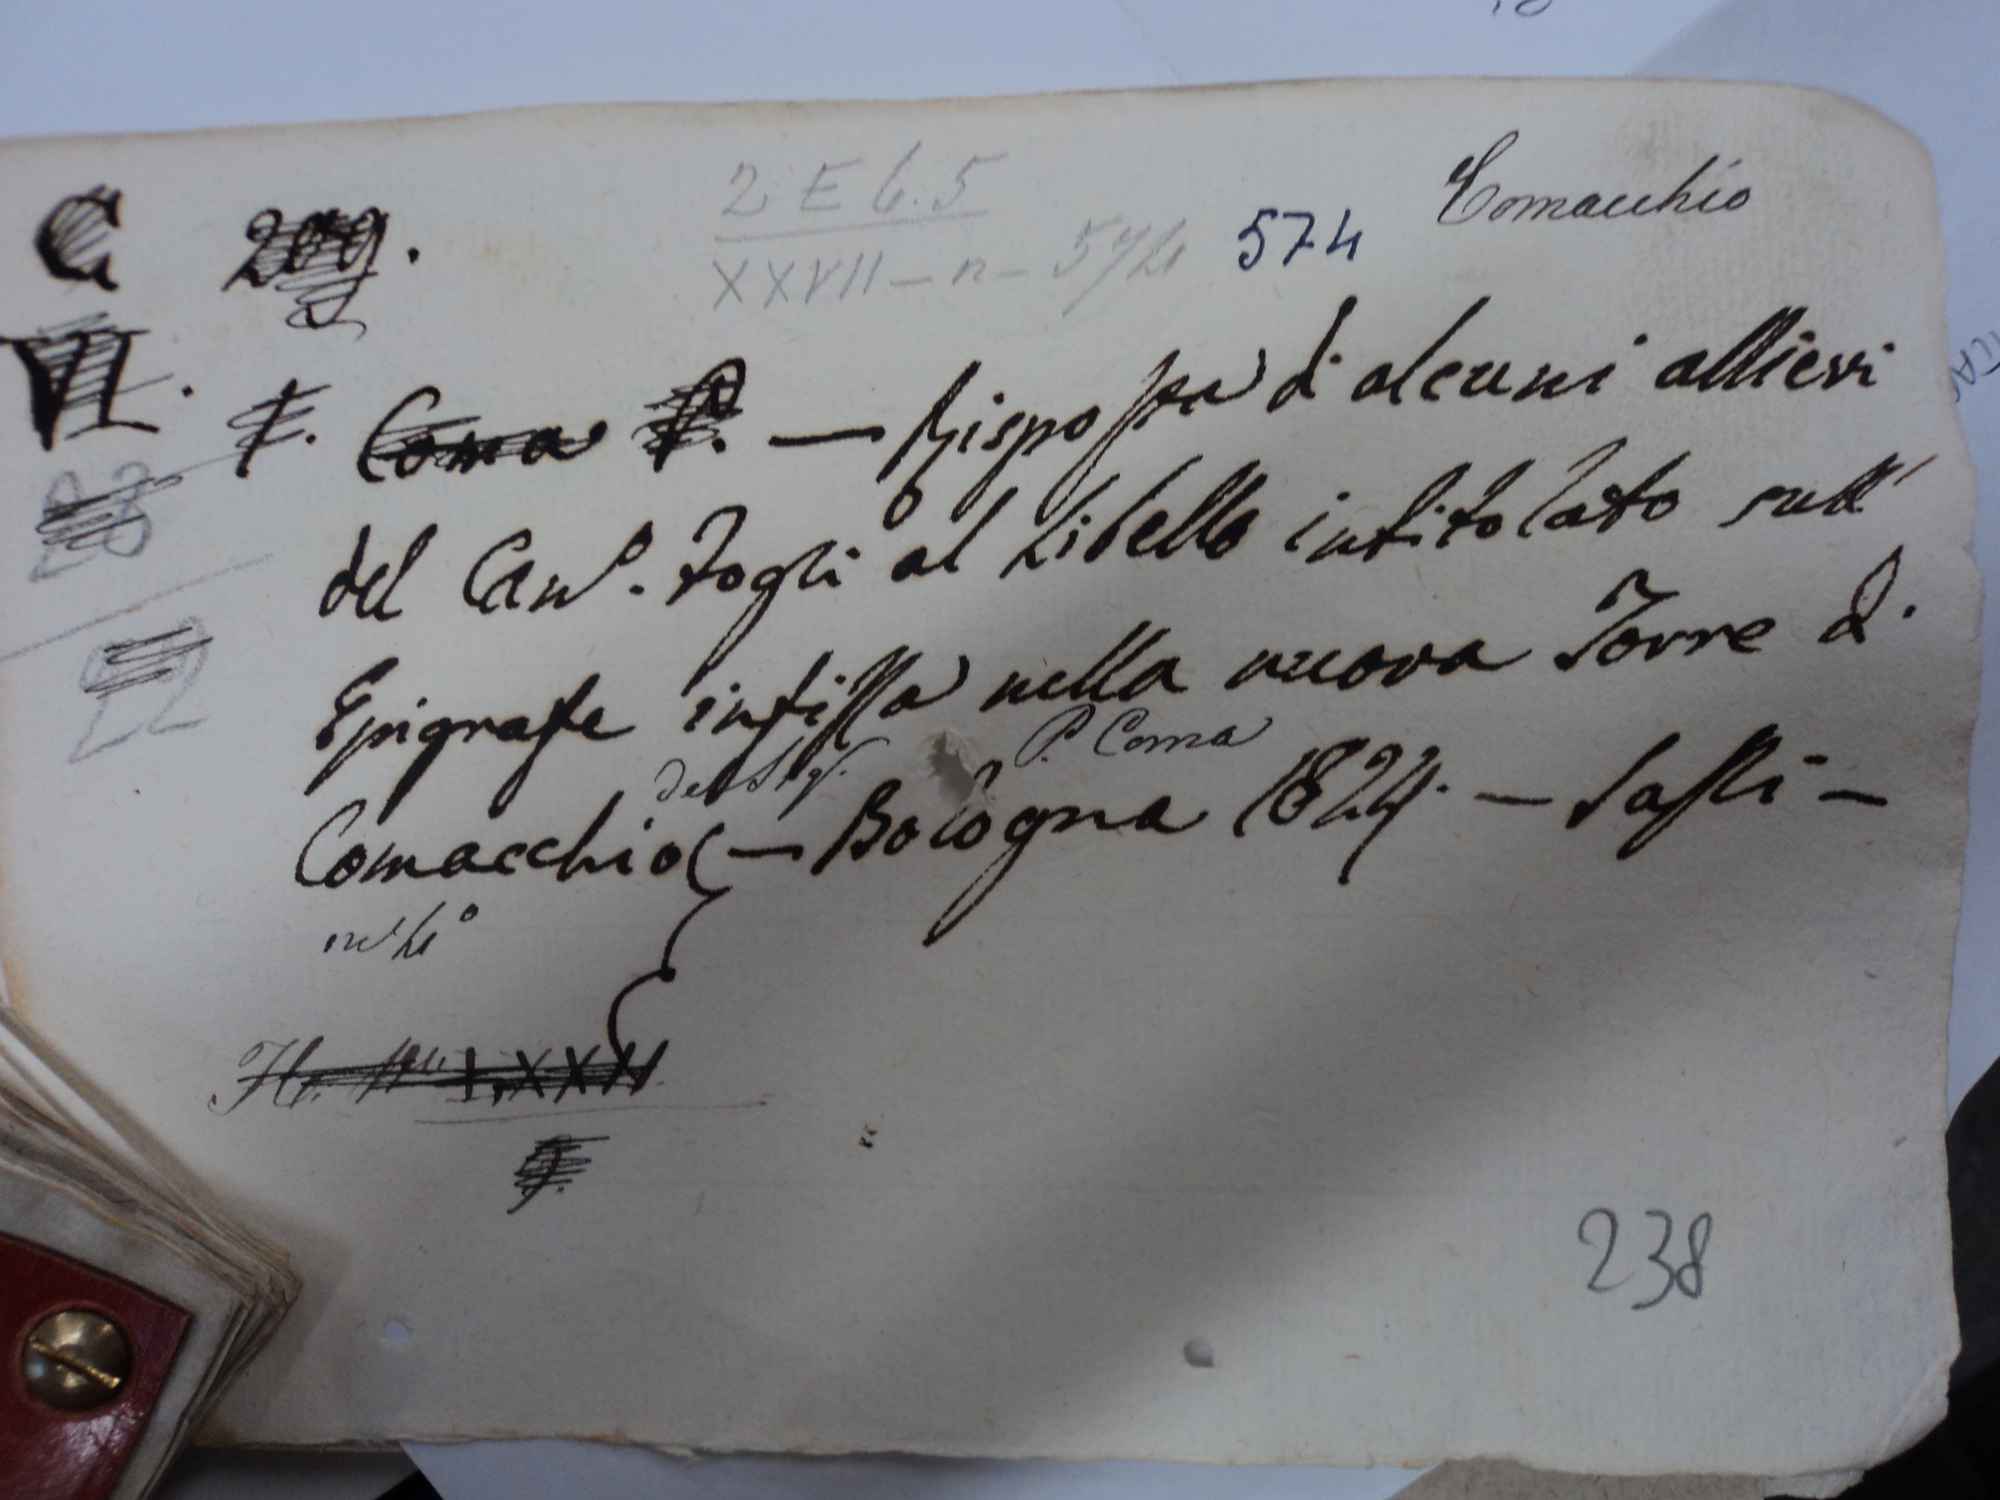 C 209.
2 E 6.5
XXVII - n - 574 574
Comacchio
VI.
f. Coma P. — Risposta di alcuni allievi
23
del Can.º Fogli al Libello intitolato sull'
22
Epigrafe infissa nella nuova Torre di
del Sig. P. Coma
Comacchio — Bologna 1824. — Sassi —
LXXII
238